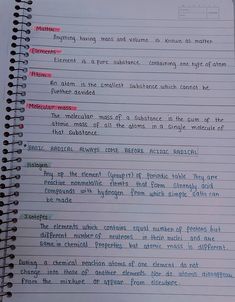 Matter
Anything having mass and volume is known as matter
Elements
Element is a pure substance containing one type of atom
Atom
An atom is the smallest substance which cannot be
further devided
Molecular mass
The molecular mass of a substance is the sum of the
atomic mass of all the atoms in a single molecule
of that substance.
BASIC RADICAL ALWAYS COME BEFORE ACIDIC RADICAL
Halogen
Any of the element (group 17) of periodic table They are
reactive nonmetallic elements that form strongly acid
compounds with hydrogen from which simple salts can
be made
Isotopes
The elements which contains equal number of protons but
different number of neutrons in their nuclei and are
same in chemical properties but atomic mass is different.
During a chemical reaction atoms of one element do not
change into those of another elements Nor do atoms disappear
from the mixture or appear from elsewhere